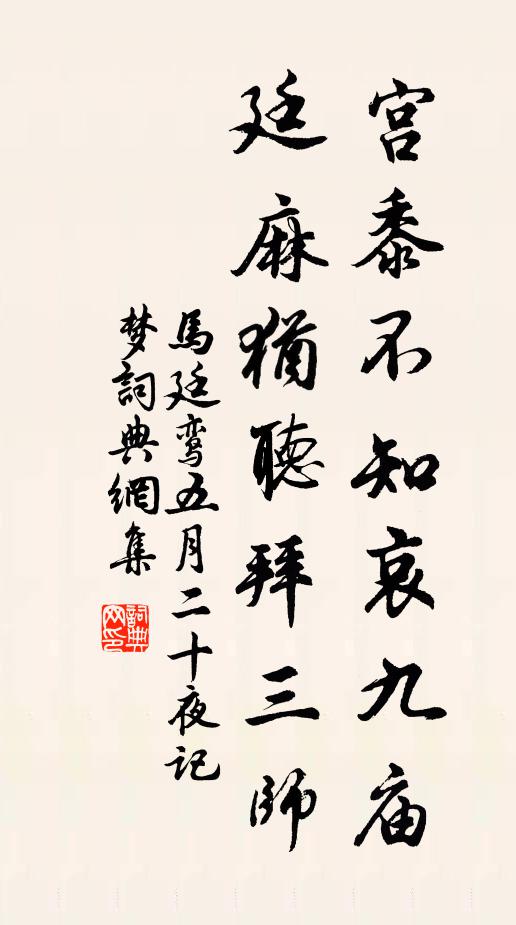 宫黍不知哀九庙
廷麻猶聽拜三師
馬廷鸾五月二十夜记
梦詞典網集
詞典网印